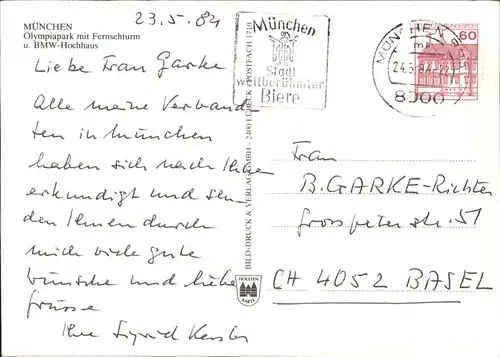 MÜNCHEN
Olympiapark mit Fernsehturm
u. BMW-Hochhaus
23.5.84
Liebe Frau Garke
Alle meine Verwand
ten in München
haben sich nach Ihnen
erkundigt und sen
den Ihnen durch
mich viele gute
Wünsche und liebe
Grüsse
Ihre Sigrid
BILD-DRUCK & VERLAG GMBH - 2400 LÜBECK - POSTFACH 1710
HOLSTEN
KARTE
München
Stadt
weltberühmter
Biere
MÜNCHEN
8000
60
Frau
B. GARKE-Richter
Grosspeterstr. 51
CH 4052 BASEL